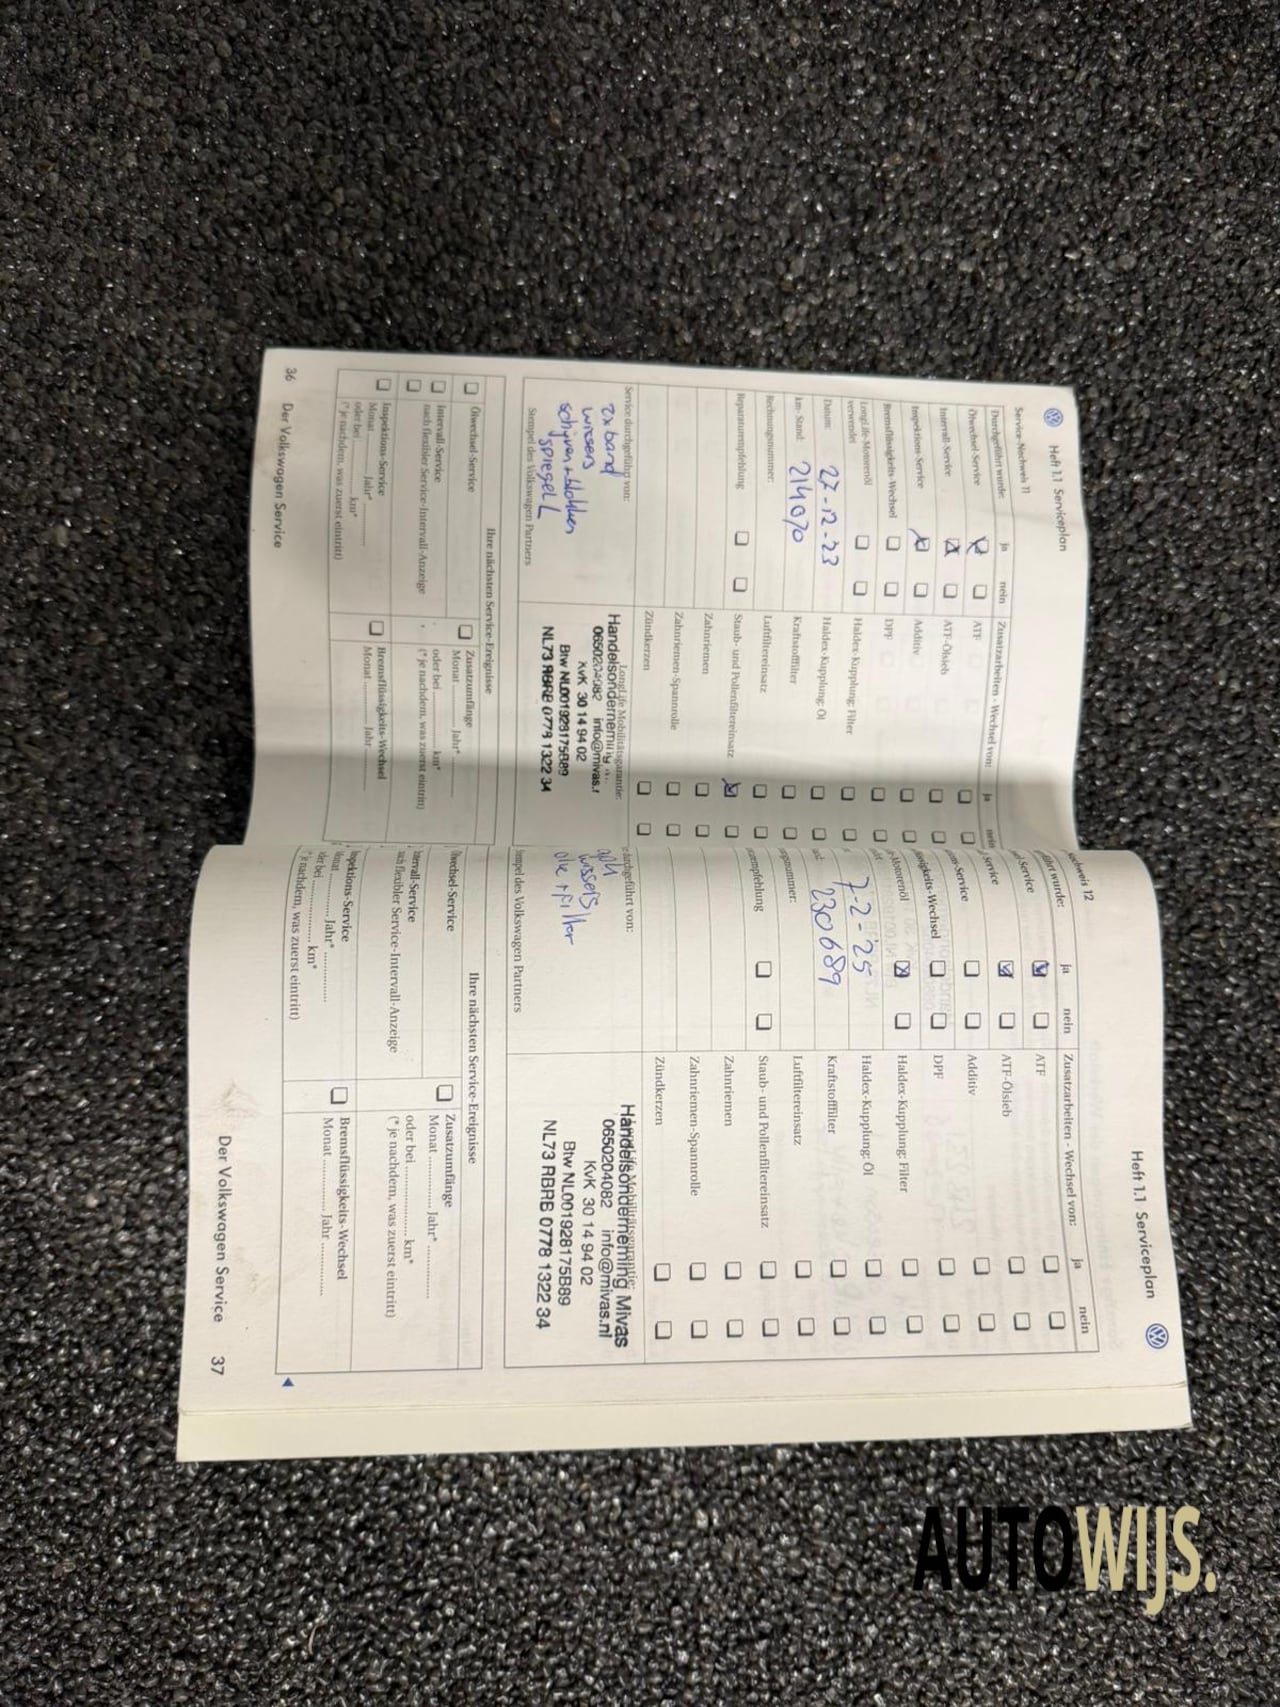 Heft 1.1 Serviceplan
Service-Nachweis 11
Durchgeführt wurde: ja nein
Ölwechsel-Service
Intervall-Service
Inspektions-Service
Bremsflüssigkeits-Wechsel
LongLife-Motorenöl
verwendet
Datum: 27-12-23
km-Stand: 214070
Rechnungsnummer:
Reparaturempfehlung
Zusatzarbeiten - Wechsel von: ja nein
ATF
ATF-Ölsieb
Additiv
DPF
Haldex-Kupplung: Filter
Haldex-Kupplung: Öl
Kraftstofffilter
Luftfiltereinsatz
Staub- und Pollenfiltereinsatz
Zahnriemen
Zahnriemen-Spannrolle
Zündkerzen
Service durchgeführt von:
2x band
wissers
schijven + blokken
spiegel L
Stempel des Volkswagen Partners
LongLife Mobilitätsgarantie:
Handelsonderneming
0650204082 info@mivas.
KvK 30 14 94 02
Btw NL001928175B89
NL73 RBRB 0778 1322 34
Ihre nächsten Service-Ereignisse
Ölwechsel-Service
Intervall-Service
nach flexibler Service-Intervall-Anzeige
Inspektions-Service
Monat ........ Jahr* ........
oder bei ........ km*
(* je nachdem, was zuerst eintritt)
Zusatzumfänge
Monat ........ Jahr* ........
oder bei ........ km*
(* je nachdem, was zuerst eintritt)
Bremsflüssigkeits-Wechsel
Monat ........ Jahr ........
36 Der Volkswagen Service
Heft 1.1 Serviceplan
chweis 12
führt wurde: ja nein
-Service
-Service
ons-Service
ssigkeits-Wechsel
-Motorenöl
7-2-'25
230689
gsnummer:
rempfehlung
Zusatzarbeiten - Wechsel von: ja nein
ATF
ATF-Ölsieb
Additiv
DPF
Haldex-Kupplung: Filter
Haldex-Kupplung: Öl
Kraftstofffilter
Luftfiltereinsatz
Staub- und Pollenfiltereinsatz
Zahnriemen
Zahnriemen-Spannrolle
Zündkerzen
e durchgeführt von:
wissers
olie + filter
empel des Volkswagen Partners
Handelsonderneming Mivas
0650204082 info@mivas.nl
KvK 30 14 94 02
Btw NL001928175B89
NL73 RBRB 0778 1322 34
Ihre nächsten Service-Ereignisse
lwechsel-Service
tervall-Service
ach flexibler Service-Intervall-Anzeige
spektions-Service
onat ........ Jahr* ........
der bei ........ km*
* je nachdem, was zuerst eintritt)
Zusatzumfänge
Monat ........ Jahr* ........
oder bei ........ km*
(* je nachdem, was zuerst eintritt)
Bremsflüssigkeits-Wechsel
Monat ........ Jahr ........
Der Volkswagen Service 37
AUTOWIJS.